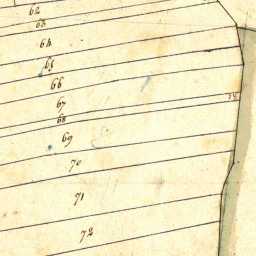 62
63
64
65
66
67
68
69
70
71
72